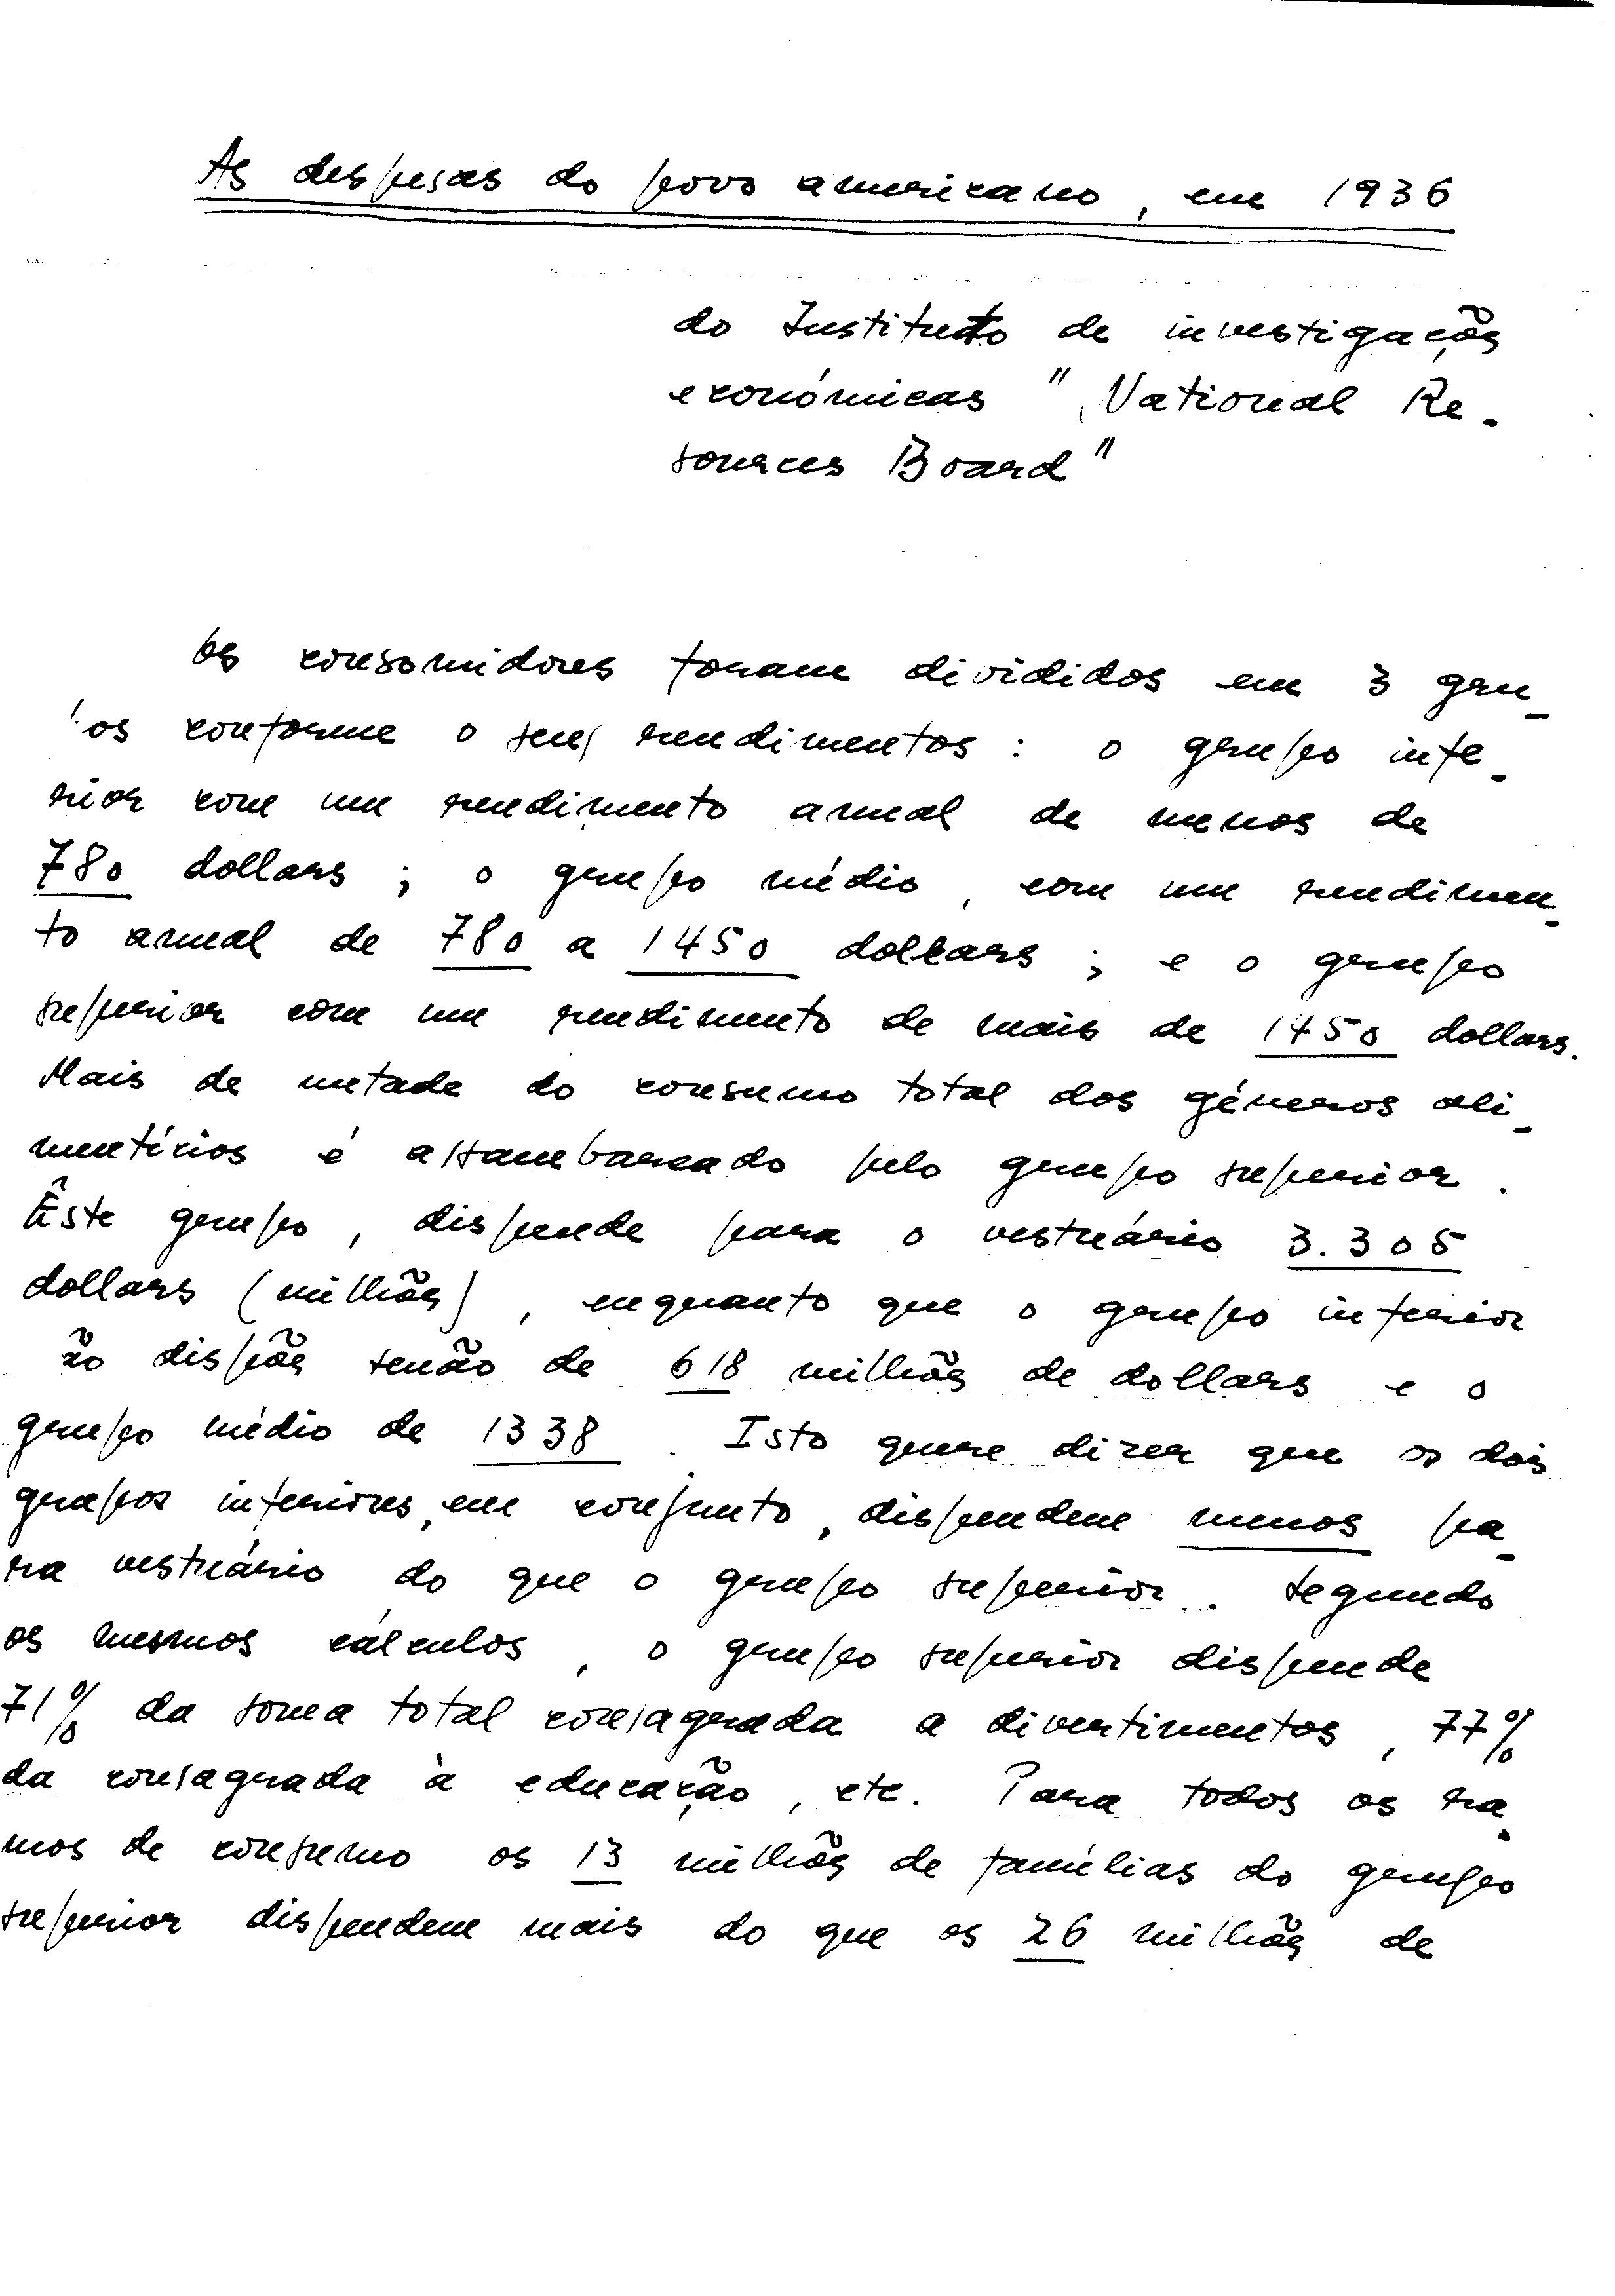 As despesas do povo americano, em 1936
do Instituto de investigações
económicas "National Re-
sources Board"
Os consomidores foram divididos em 3 gru-
os conforme o seus rendimentos: o grupo infe-
rior com um rendimento anual de menos de
780 dollars; o grupo médio, com um rendimen-
to anual de 780 a 1450 dollars; e o grupo
superior com um rendimento de mais de 1450 dollars.
Mais de metade do consumo total dos géneros ali-
mentícios é assambarcado pelo grupo superior.
Êste grupo, dispende para o vestuário 3.305
dollars (milhões), enquanto que o grupo inferior
ão dispões senão de 618 milhões de dollars e o
grupo médio de 1338. Isto quere dizer que os dois
grupos inferiores, em conjunto, dispendem menos pa-
ra vestuário do que o grupo superior. Segundo
os mesmos cálculos, o grupo superior dispende
71% da soma total consagrada a divertimentos, 77%
da consagrada à educação, etc. Para todos os ra-
mos de consumo os 13 milhões de famílias do grupo
superior dispendem mais do que os 26 milhões de